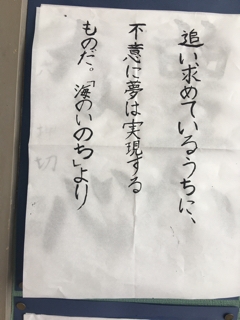 追い求めているうちに、
不意に夢は実現する
ものだ。「海のいのち」より